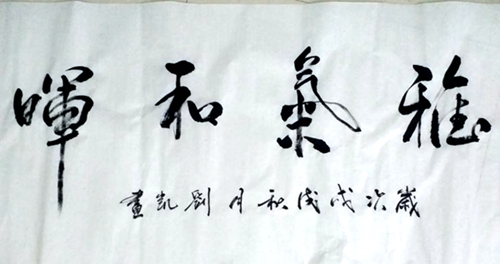 雅氣和暉
歲次戊戌秋月劉凱書